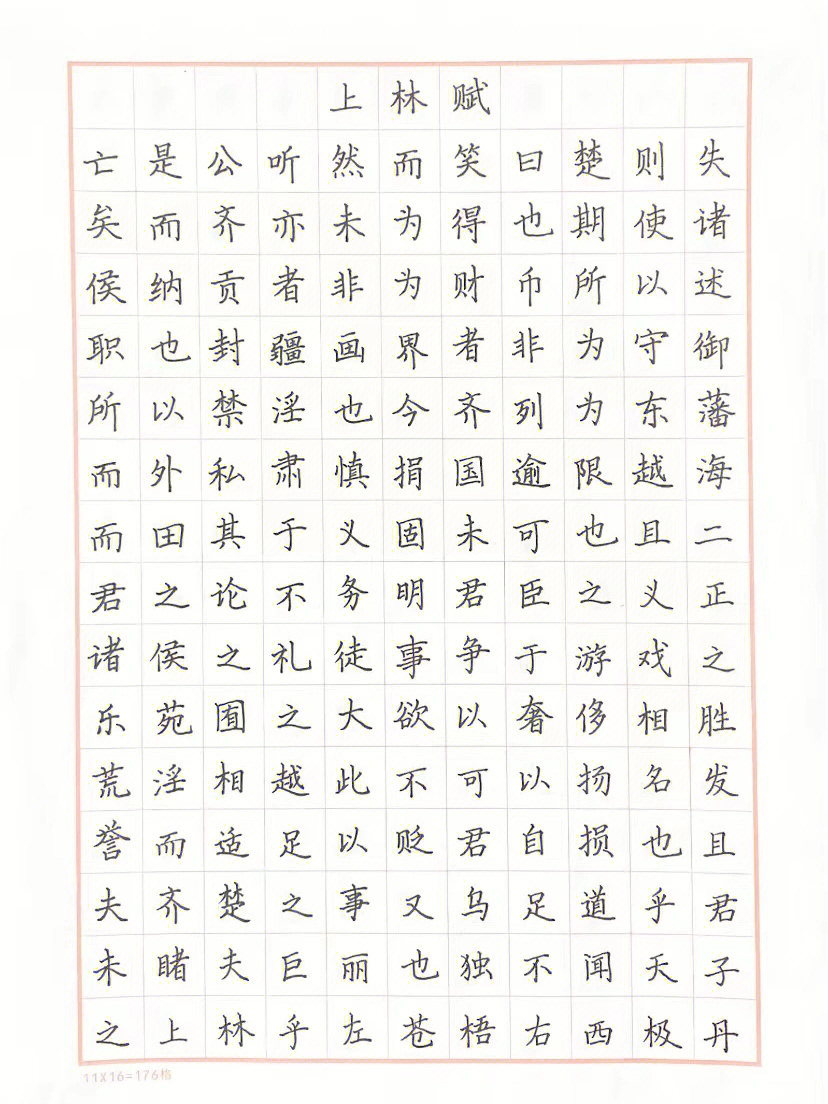 上林赋
亡是公听然而笑曰楚则失
矣而齐亦未为得也期使诸
侯纳贡者非为财币所以述
职也封疆画界者非为守御
所以禁淫也今齐列为东藩
而外私肃慎捐国逾限越海
而田其于义固未可也且二
君之论不务明君臣之义正
诸侯之礼徒事争于游戏之
乐苑囿之大欲以奢侈相胜
荒淫相越此不可以扬名发
誉而适足以贬君自损也且
夫齐楚之事又乌足道乎君
未睹夫巨丽也独不闻天子
之上林乎左苍梧右西极丹
11X16=176格